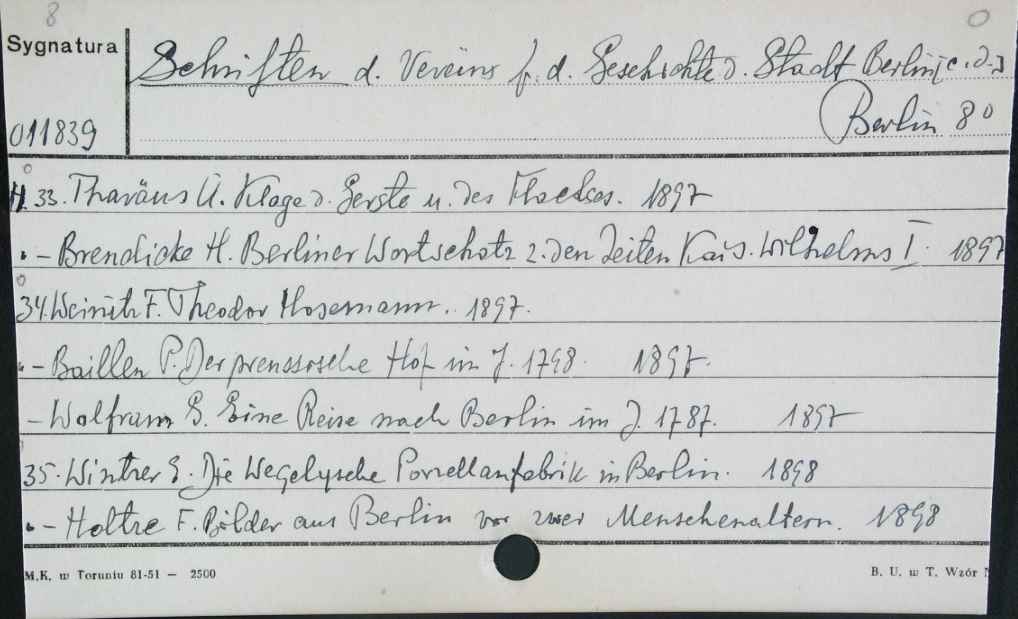 8 0
Sygnatura
Schriften d. Vereins f. d. Geschichte d. Stadt Berlin [c.d.]
011839
Berlin 8°
H. 33. Tharäus A. Klage d. Gerste u. des Flachses. 1897
" - Brendicke H. Berliner Wortschatz z. den Zeiten Kais. Wilhelms I. 1897
34. Weinitz F. Theodor Hosemann. 1897.
" - Bailleu P. Der preussische Hof im J. 1798. 1897.
- Wolfram G. Eine Reise nach Berlin im J. 1787. 1897
35. Wintzer E. Die Wegelysche Porzellanfabrik in Berlin. 1898
" - Holtze F. Bilder aus Berlin vor zwei Menschenaltern. 1898
M.K. w Toruniu 81-51 — 2500
B. U. w T. Wzór